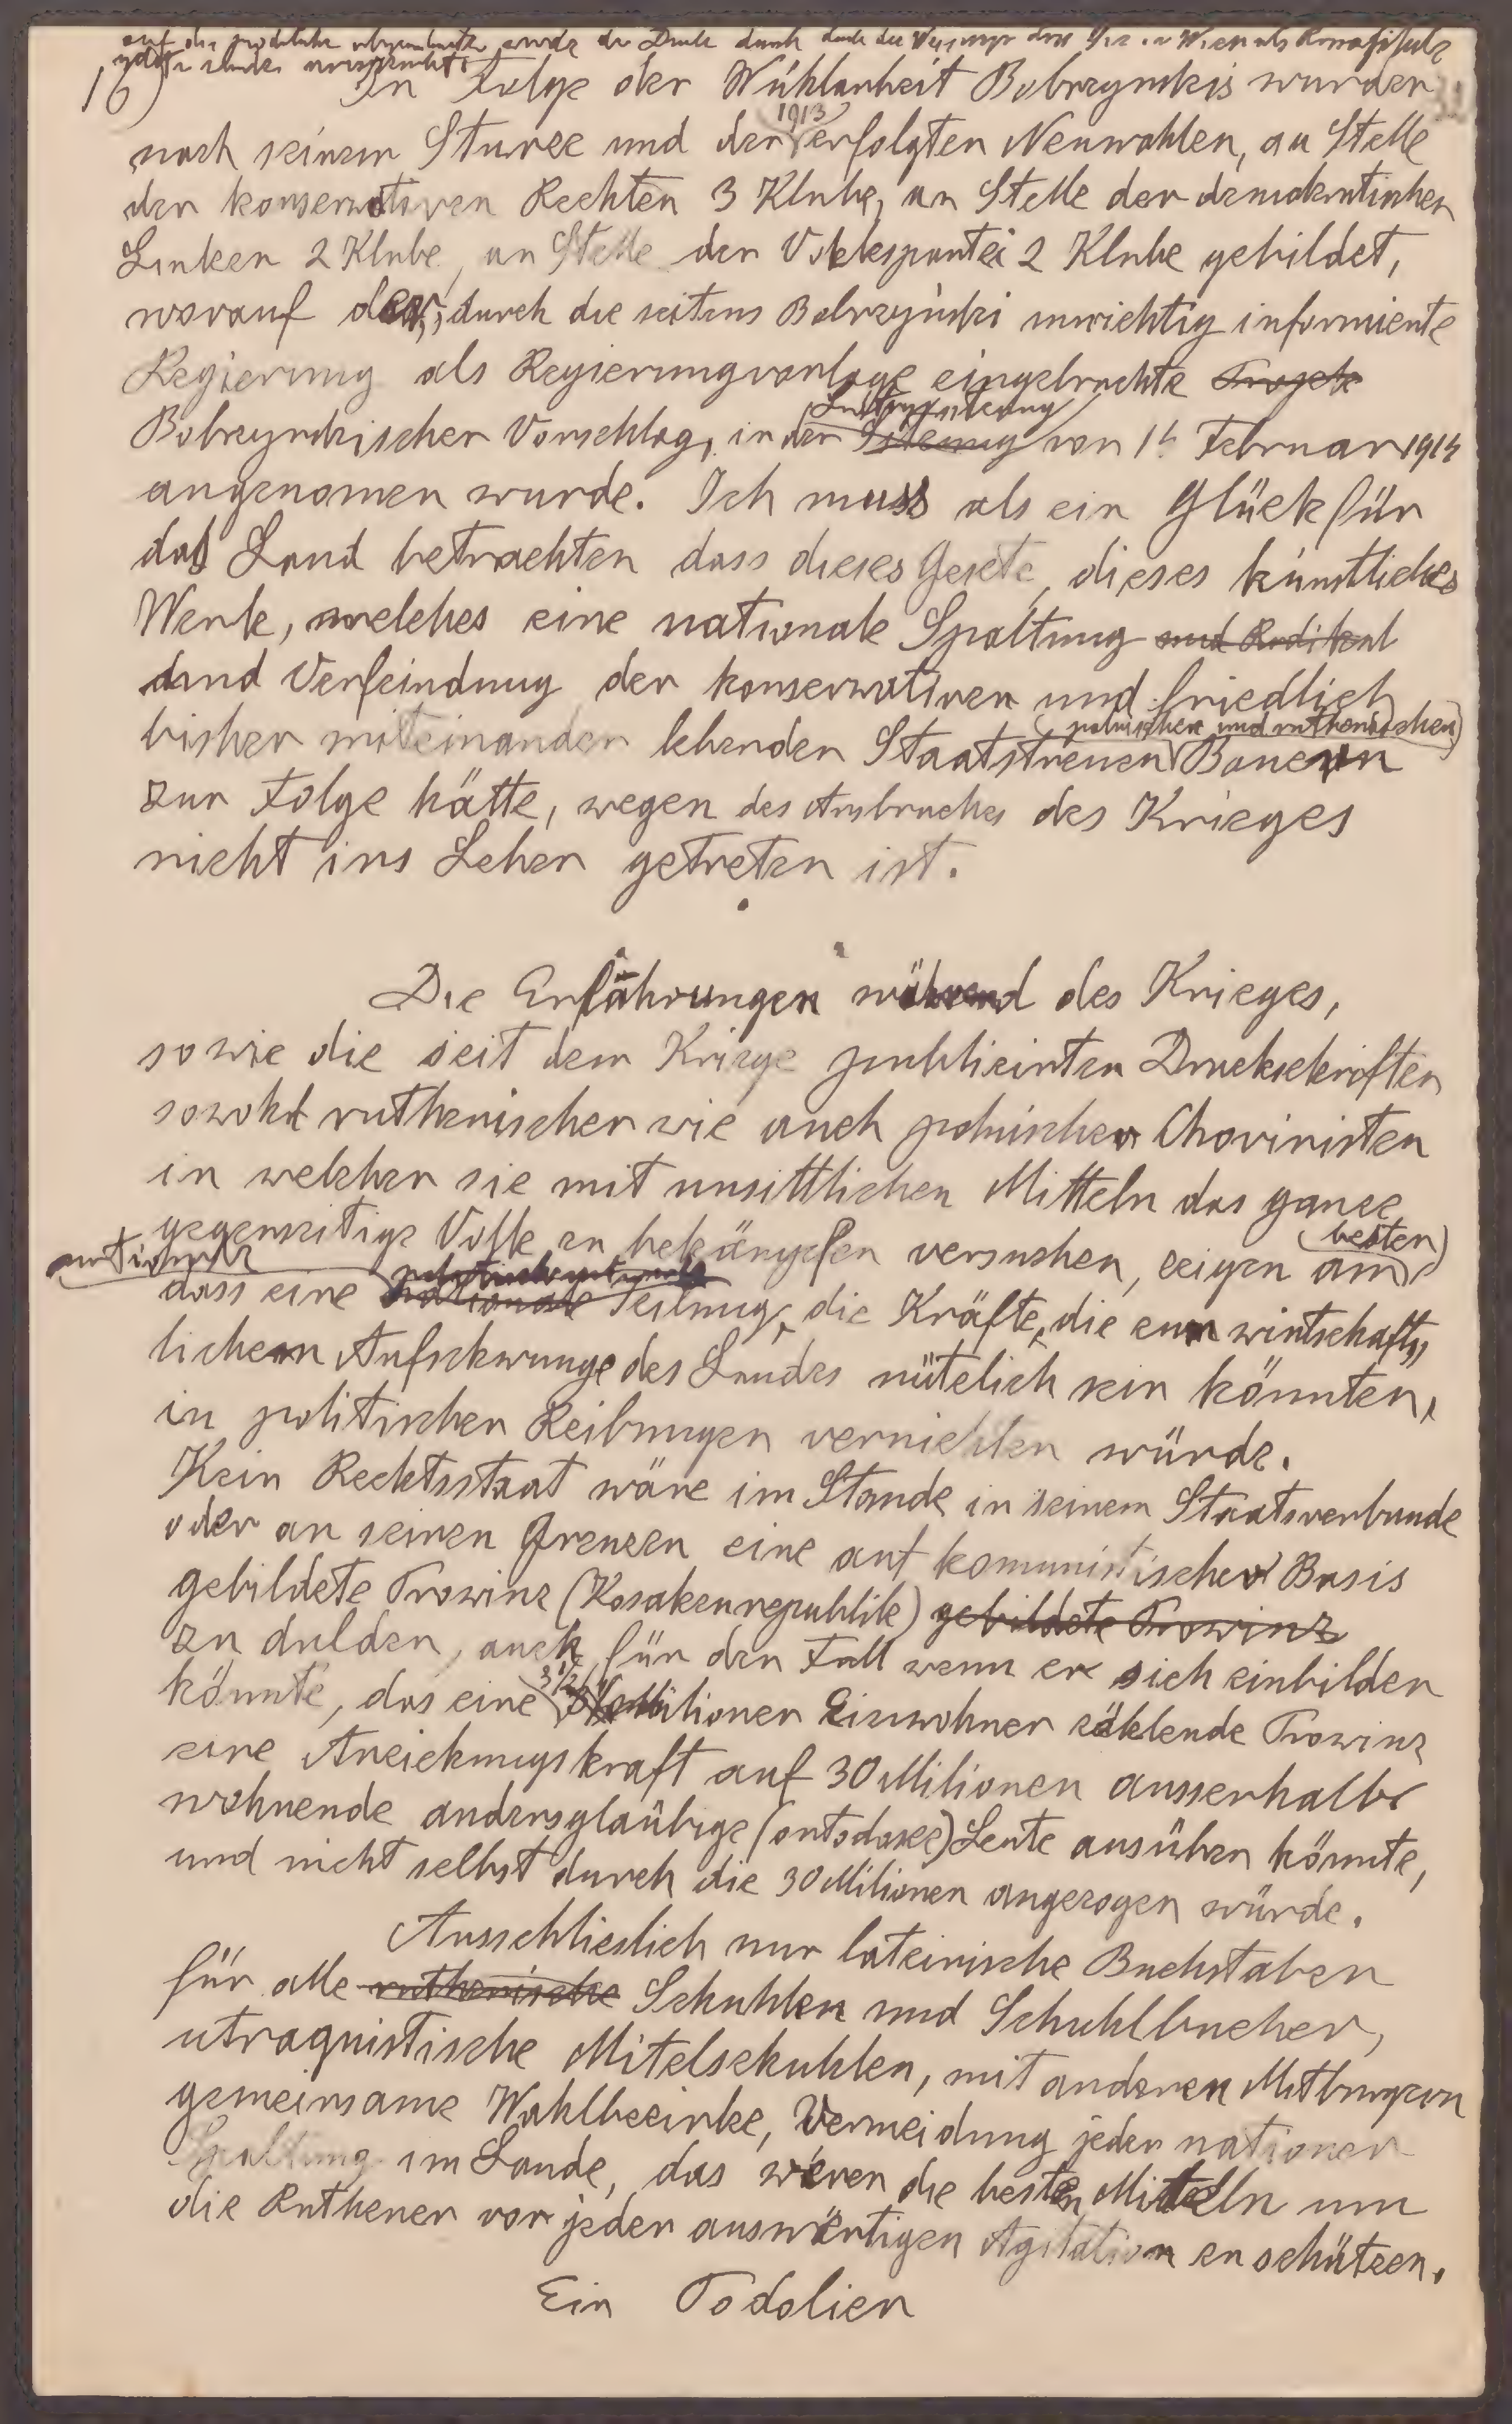 16)
In Folge der Wühlarheit Bobrzynskis wurden
nach seinem Sturze und den 1913 erfolgten Neuwahlen, an Stelle
der konservativen Rechten 3 Klube, an Stelle der demokratischen
Linken 2 Klube, an Stelle der Volkspartei 2 Klube gebildet,
worauf der, durch die seitens Bobrzyński unrichtig informierte
Regierung als Regierungvorlage eingebrachte Projekt
Bobrzynskischer Vorschlag, in der Sitzung von 14 Februar 1914
angenomen wurde. Ich muss als ein Glück für
das Land betrachten dass dieses Gesetz, dieses künstliches
Werk, welches eine nationale Spaltung und Radikal
und Verfeindung der konservativen und friedlich
bisher miteinander lebenden Staatstreuen (polnischen und ruthenischen) Bauern
zur Folge hätte, wegen des Ausbruches des Krieges
nicht ins Leben getreten ist.
Die Erfahrungen während des Krieges,
sowie die seit dem Kriege publizirten Druckschriften
sowohl ruthenischer wie auch polnischer Chovinisten
in welcher sie mit unsittlichen Mitteln das ganze
gegenseitige Volk zu bekämpfen versuchen, zeigen am besten
dass eine nationale Teilung, die Kräfte, die zum wirtschafts
lichem Aufschwunge des Landes nützlich sein könnten,
in politischen Reibungen vernichten würde.
Kein Rechtsstaat wäre im Stande in seinem Staatsverbunde
oder an seinen Grenzen eine auf komunistischer Basis
gebildete Prowinz (Kosakenrepublik) gebildete Prowinz
zu dulden, auch für den Fall wenn er sich einbilden
könnte, das eine 3 1/2 Milionen Einwohner zählende Prowinz
eine Anziehungskraft auf 30 Milionen ausserhalb
wohnende andersglaübige (ortodoxee) Leute ausüben könnte,
und nicht selbst durch die 30 Milionen angezogen würde.
Ausschlieslich nur lateinische Buchstaben
für alle ruthenische Schuhlen und Schuhlbucher,
utraquistische Mitelschuhlen, mit anderen Mitburgern
gemeinsame Wahlbezirke, Vermeidung jeder nationen
Spaltung im Lande, das wären die besten Mitteln um
die Ruthener vor jeder auswärtigen Agitation zu schützen.
Ein Podolier